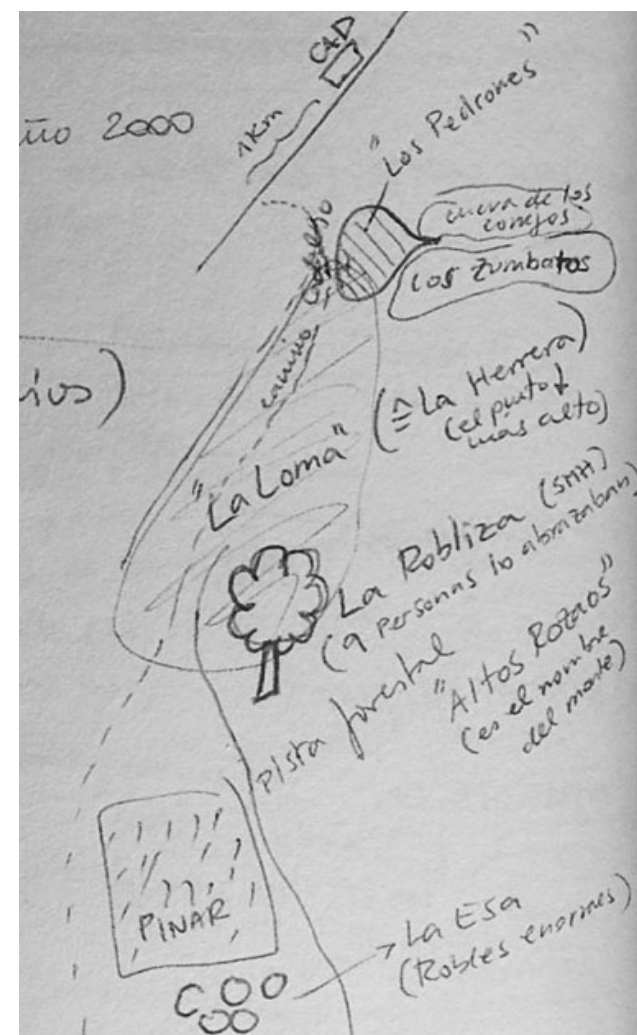 CAD
ño 2000
1Km
"Los Pedrones"
cueva de los
conejos
Los Zumbatos
camino
ios)
(≙ La Herrera)
(el punto
más alto)
"La Loma"
La Robliza (SMA)
(9 personas lo abrazaban)
pista forestal
"Altos Rozaos"
(es el nombre
del monte)
PINAR
La Esa
(Robles enormes)